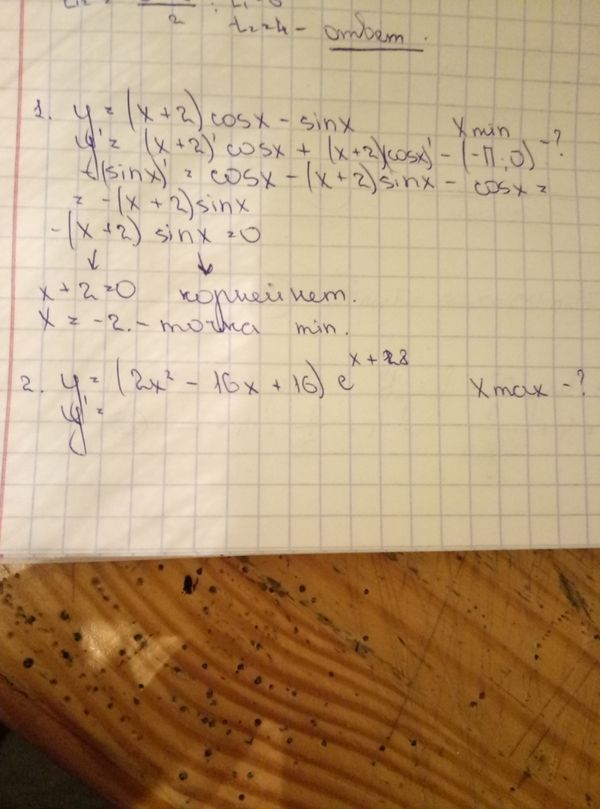 2 t₂ = 4 - ответ.
1. y = (x+2) cosx - sinx
x min
y' = (x+2)' cosx + (x+2)(cosx)' - (-π; 0) - ?
- (sinx)' = cosx - (x+2) sinx - cosx =
= -(x+2) sinx
-(x+2) sinx = 0
↓ ↓
x+2=0 корней нет.
x = -2. - точка min.
2. y = (2x² - 16x + 16) e^(x+28) x max - ?
y' =